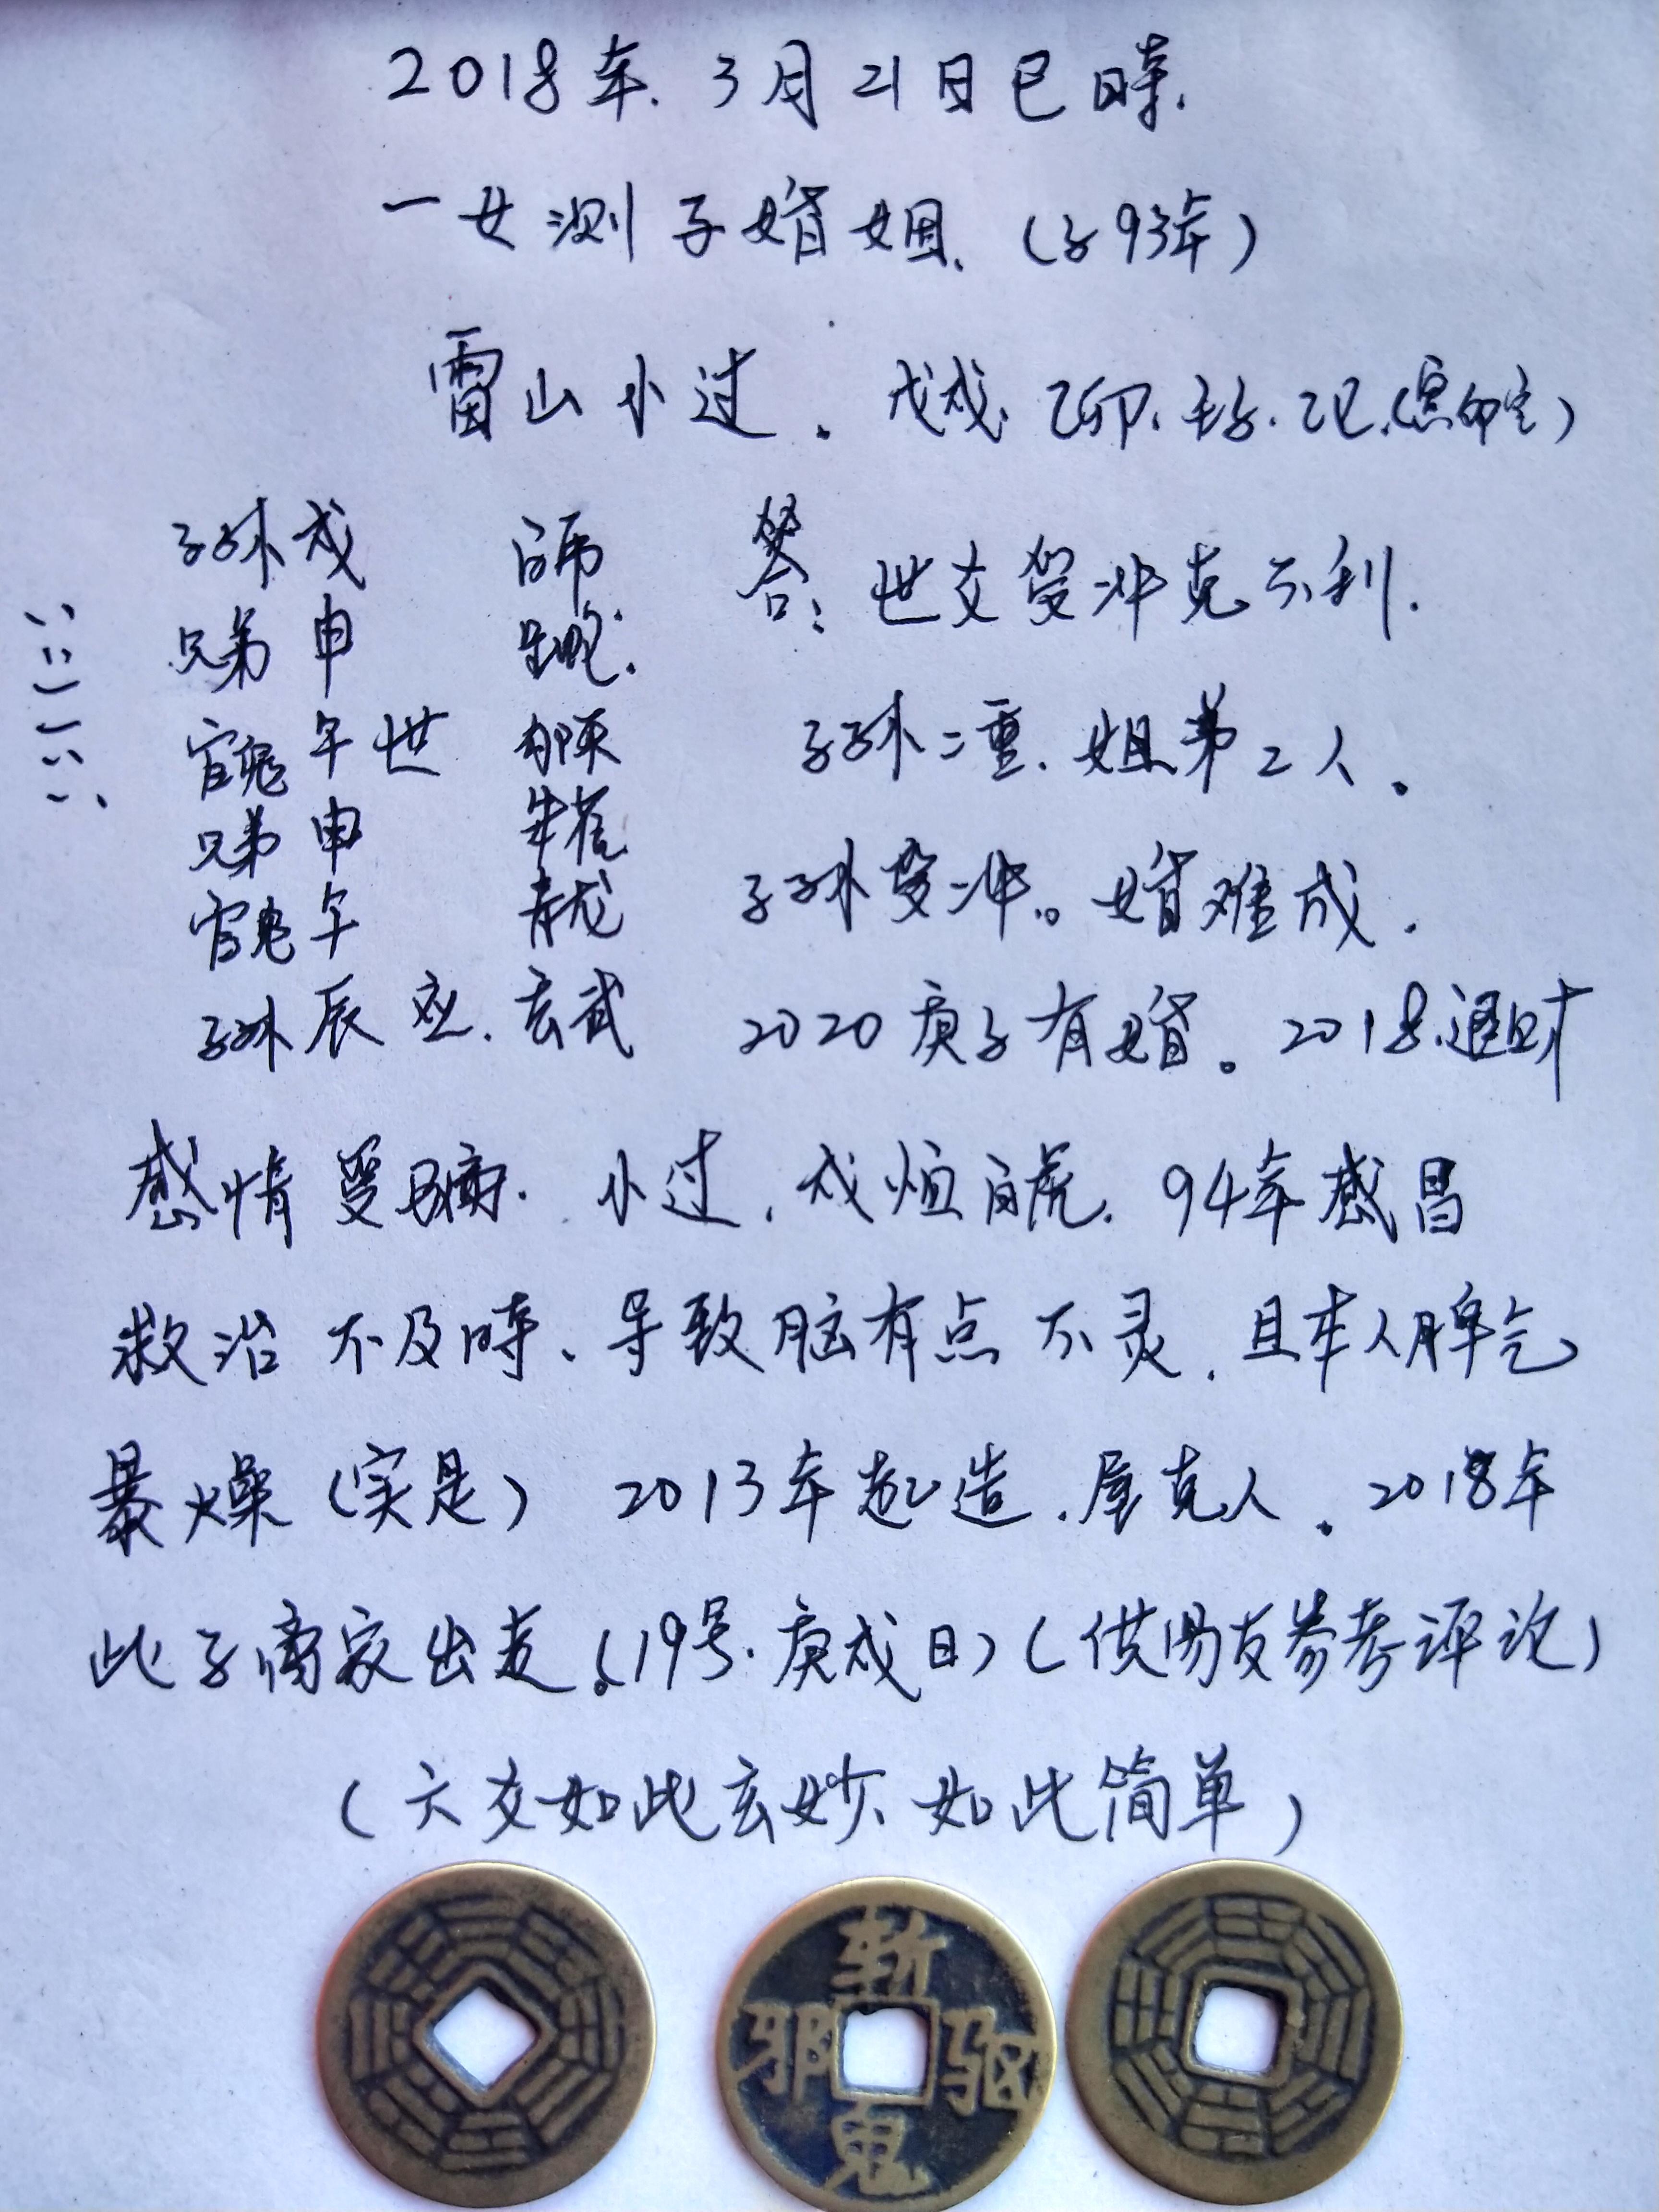 2018年.3月21日巳時.
一女测子婚姻.(子93年)
雷山小过. 戊戌.乙卯.壬子.乙巳.(寅卯空)
子孙戌 白虎 答:世爻受冲克不利.
兄弟申 螣蛇.
官鬼午世 勾陈 子孙二重.姐弟2人。
兄弟申 朱雀
官鬼午 青龙 子孙受冲。婚难成.
子孙辰应.玄武 2020庚子有婚。2018.遇财
感情受骗.小过.戌爻白虎.94年感昌
救治不及時、导致脑有点不灵.且本人脾气
暴燥(实是) 2013年起造.屋克人.2018年
此子离家出走.(19号.庚戌日)(供易友参考评论)
(六爻如此玄妙、如此简单)
斩
邪 驱
鬼